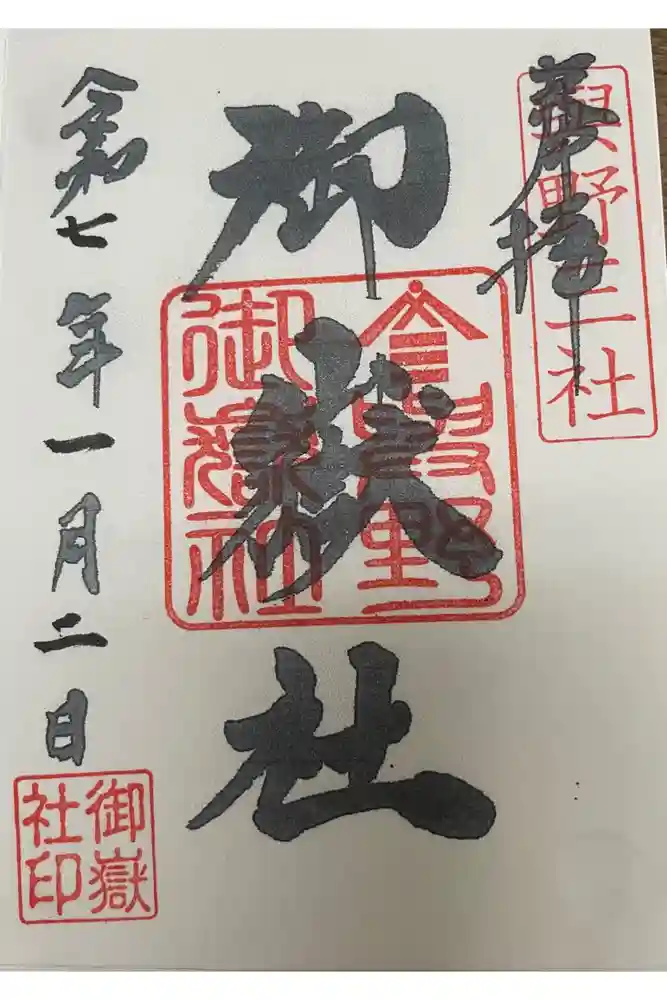 奉拝
野三社
御嶽社
御嶽社
令和七年一月二日
御嶽
社印